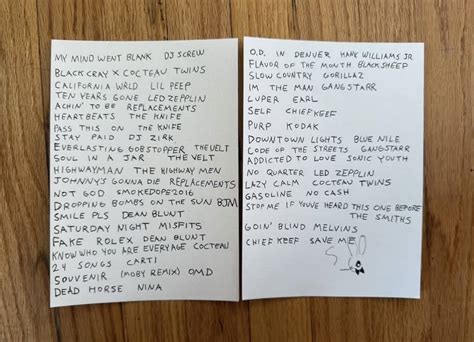 MY MIND WENT BLANK DJ SCREW
BLACK CRAY X COCTEAU TWINS
CALIFORNIA WRLD LIL PEEP
TEN YEARS GONE LED ZEPPLIN
ACHIN' TO BE REPLACEMENTS
HEARTBEATS THE KNIFE
PASS THIS ON THE KNIFE
STAY PAID DJ ZIRK
EVERLASTING GOBSTOPPER THE VELT
SOUL IN A JAR THE VELT
HIGHWAYMAN THE HIGHWAY MEN
JOHNNY'S GONNA DIE REPLACEMENTS
NOT GOD SMOKEDOPE2016
DROPPING BOMBS ON THE SUN BJM
SMILE PLS DEAN BLUNT
SATURDAY NIGHT MISFITS
FAKE ROLEX DEAN BLUNT
KNOW WHO YOU ARE EVERYAGE COCTEAU
24 SONGS CARTI
SOUVENIR (MOBY REMIX) OMD
DEAD HORSE NINA
O.D. IN DENVER HANK WILLIAMS JR
FLAVOR OF THE MONTH BLACK SHEEP
SLOW COUNTRY GORILLAZ
IM THE MAN GANGSTARR
LUPER EARL
SELF CHIEF KEEF
PURP KODAK
DOWNTOWN LIGHTS BLUE NILE
CODE OF THE STREETS GANGSTARR
ADDICTED TO LOVE SONIC YOUTH
NO QUARTER LED ZEPPLIN
LAZY CALM COCTEAU TWINS
GASOLINE NO CASH
STOP ME IF YOUVE HEARD THIS ONE BEFORE
THE SMITHS
GOIN' BLIND MELVINS
CHIEF KEEF SAVE ME